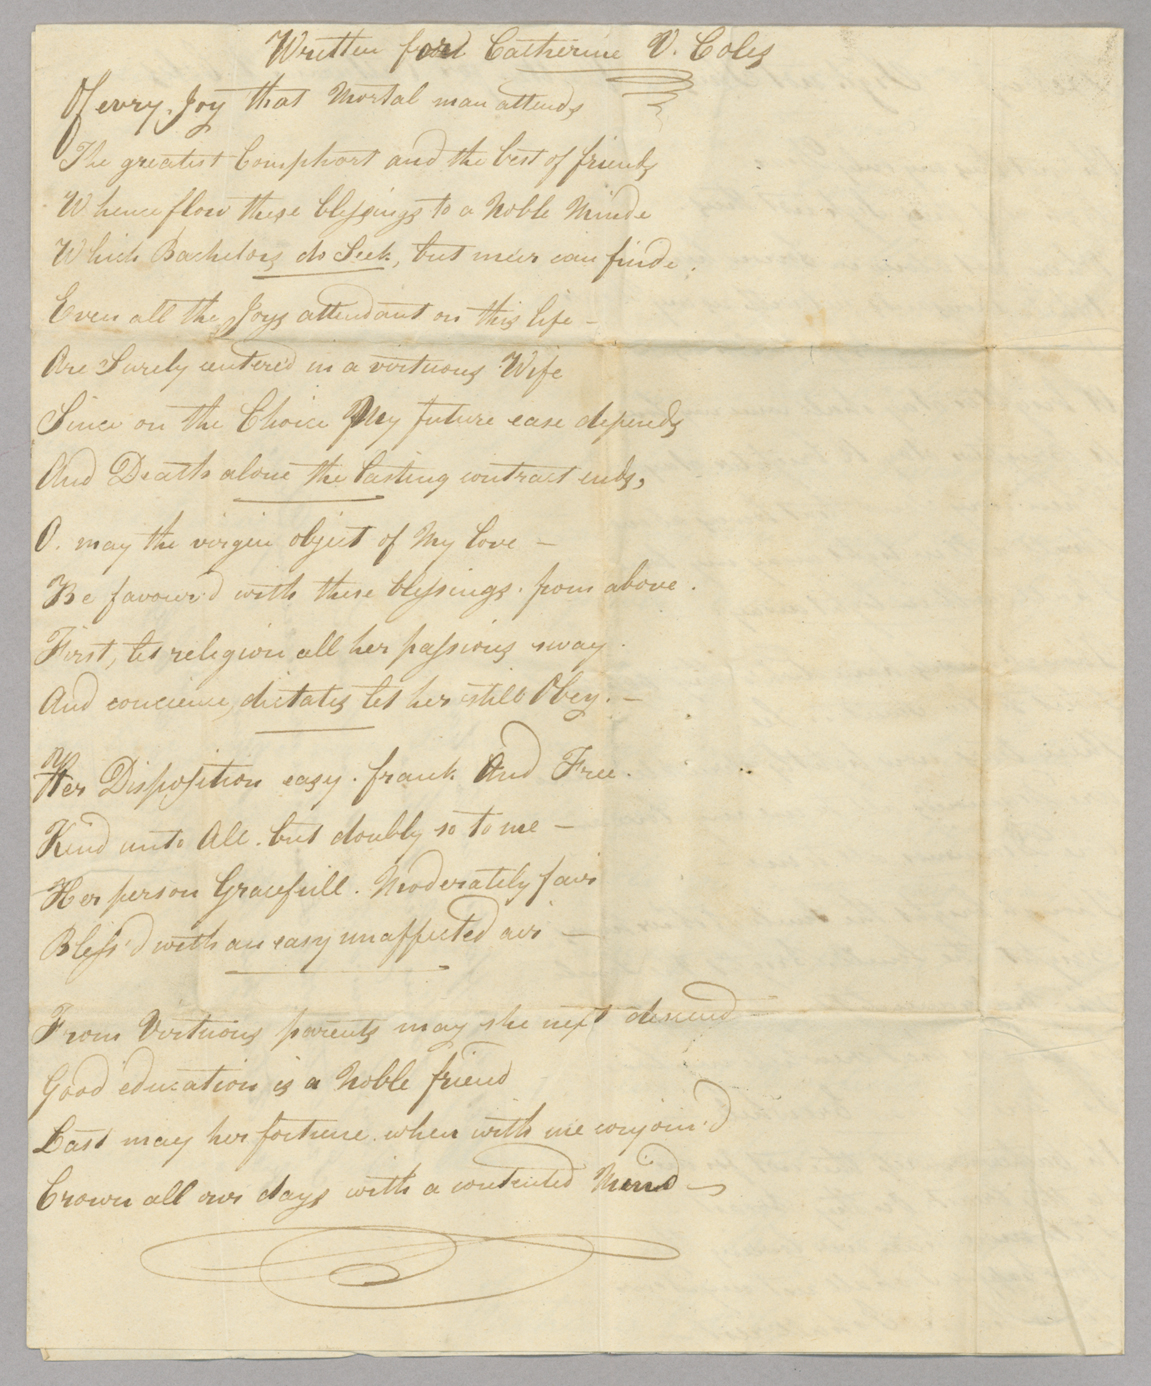 Written for Catherine V. Coles
Of evry Joy that Mortal man attends
The greatest Comphort and the best of friends
Whence flow these blessings to a Noble Minde
Which Bachelors do Seek, but neer can finde.
Even all the Joys attendant on this life –
Are Surely centered in a virtuous Wife
Since on the Choice My future ease depends
And Death alone the lasting contract ends,
O. may the virgin object of My love –
Be favour'd with these blessings. from above.
First, let religion all her passions sway.
And concience, dictates let her still Obey. –
Her Disposition easy. frank And Free.
Kind unto All. but doubly so to me –
Her person Gracefull. Moderately fair
Bless'd with an easy unaffected air –
From Virtuous parents may she next descend –
Good education is a Noble friend
Last may her fortune when with me conjoin'd
Crown all our days with a contented Mind –